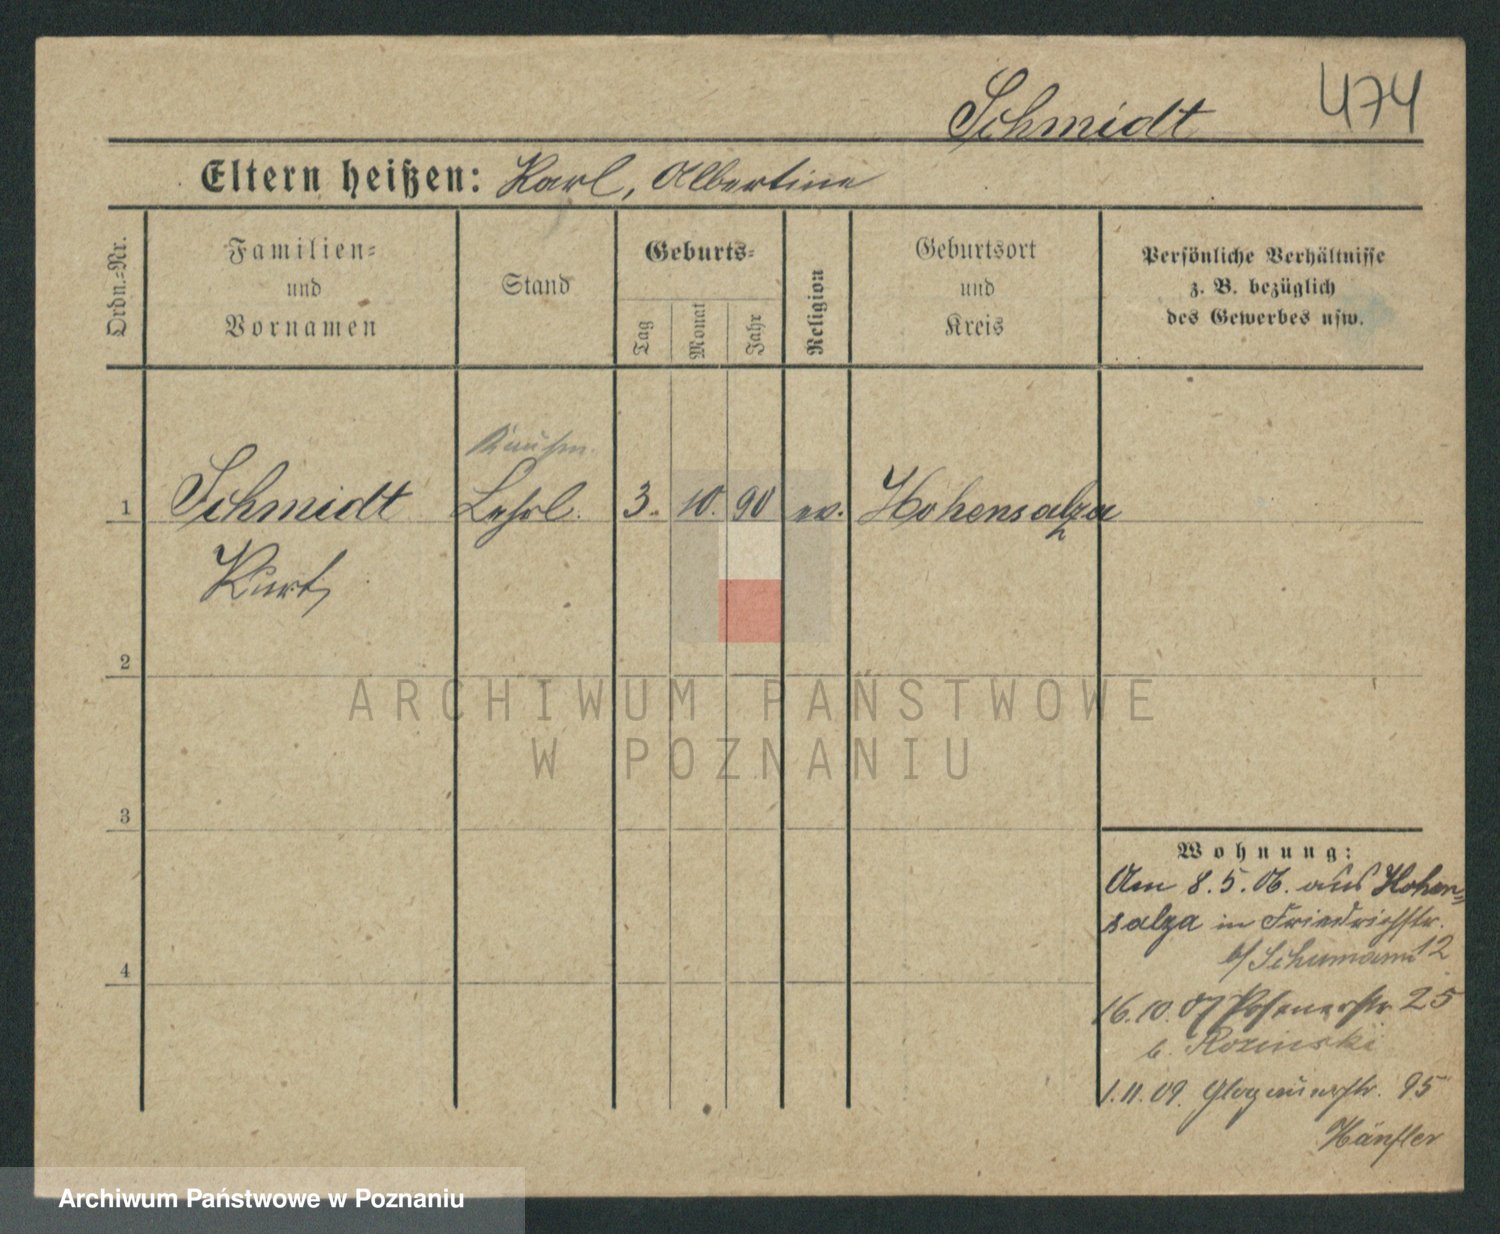 Schmidt 474
Eltern heißen: Karl, Albertine
Ordn.-Nr.
Familien-
und
Vornamen
Stand
Geburts-
Tag
Monat
Jahr
Religion
Geburtsort
und
Kreis
Persönliche Verhältnisse
z. B. bezüglich
des Gewerbes usw.
Kaufm.
1 Schmidt Lehrl. 3. 10. 90 ev. Hohensalza
Kurt
2
ARCHIWUM PAŃSTWOWE
W POZNANIU
3
Wohnung:
Am 8.5.06. aus Hohen=
salza in Friedrichstr.
b/ Schumann 12
4
16.10.07 Posenerstr. 25
b. Rozinski
1.11.09. Glogauerstr. 95
Hänsler
Archiwum Państwowe w Poznaniu